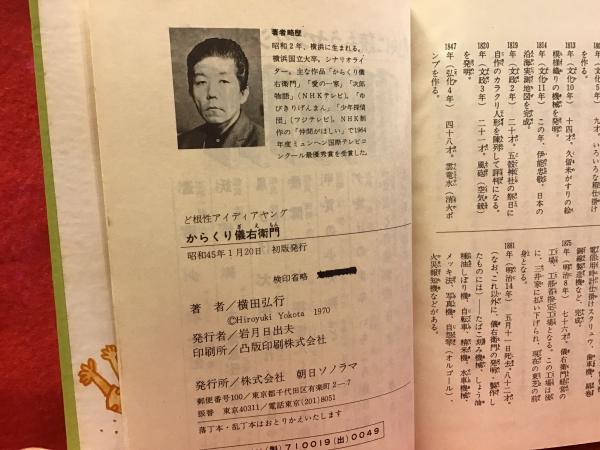 著者略歴
昭和2年、横浜に生まれる。
横浜国立大卒。シナリオライ
ター。主な作品「からくり儀
右衛門」「愛の一家」「次郎
物語」(NHKテレビ)。「ゆ
びきりげんまん」「少年探偵
団」(フジテレビ)。NHK制
作の「仲間がほしい」で1964
年度ミュンヘン国際テレビコ
ンクール最優秀賞を受賞した。
ど根性アイディアヤング
からくり儀右衛門
昭和45年1月20日 初版発行
検印省略
著者/横田弘行
©Hiroyuki Yokota 1970
発行者/岩月日出夫
印刷所/凸版印刷株式会社
発行所/株式会社 朝日ソノラマ
郵便番号100/東京都千代田区有楽町2-7
振替 東京40311/電話東京(201)8051
落丁本・乱丁本はおとりかえいたします
710019(出)0049
九才。いろいろな細仕掛け
1813年(文化10年) 十四才。久留米がすりの絵
模様織りの機械を発明。
1814年(文化11年) この年、伊能忠敬、日本の
沿海実測地図を完成。
1819年(文政2年) 二十才。五穀神社の祭日に
自作のカラクリ人形を陳列して評判になる。
1820年(文政3年) 二十一才。風砲(空気銃)
を発明。
1847年(弘化4年) 四十八才。雲竜水(消火ポ
ンプを作る。
銅線製造機など、完成。
1875年(明治8年) 七十六才。儀右衛門経営の
工場、工部省指定工場となる。この工場は後
に、三井家に払い下げられ、現在の東芝の前
身となる。
1881年(明治14年) 五月十一日死去。八十二才。
(なお、これ以外に、儀右衛門の発明、製作し
たものには――たばこ刻み機械、しょう油
種油しぼり機、自転車、精米機、水車機械、
メッキ法、写真機、自鳴琴(オルゴール)、
火災報知機などがある。